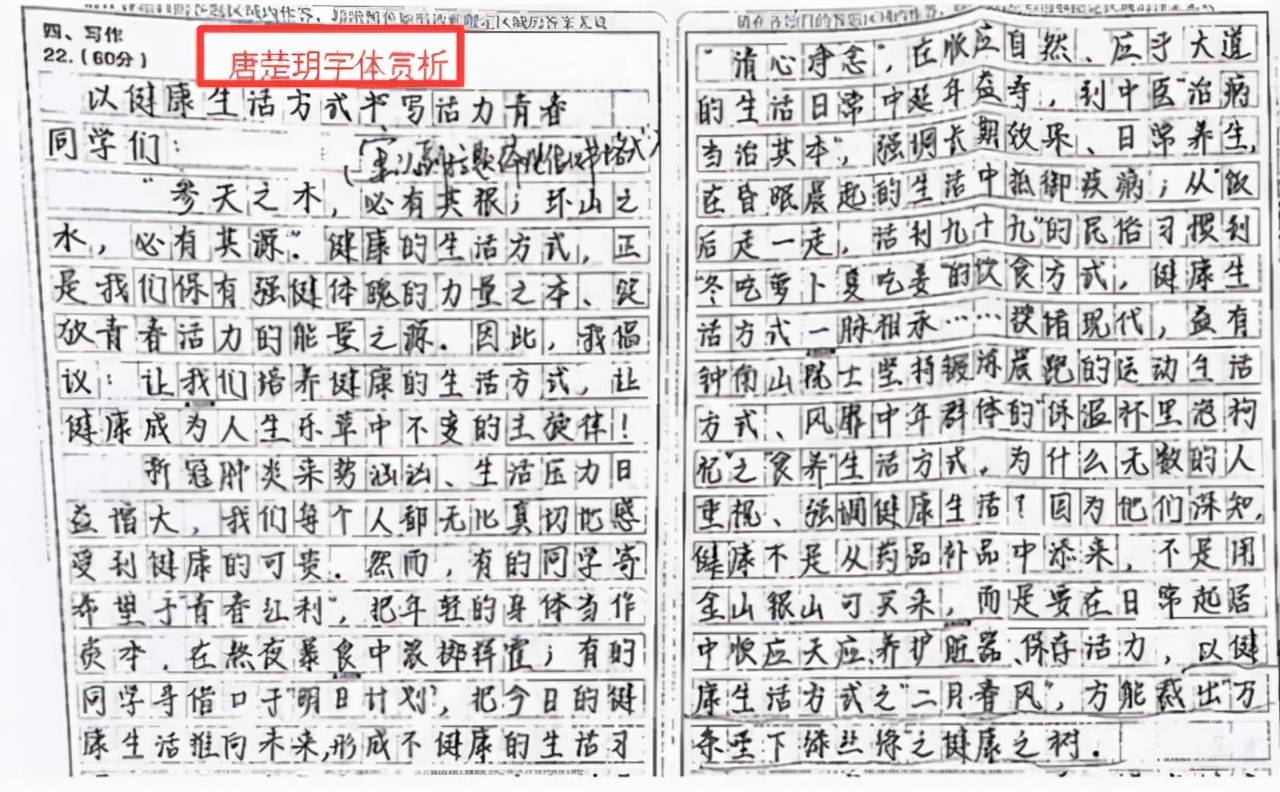 四、写作
22.（60分）
唐楚玥字体赏析
以健康生活方式书写活力青春
同学们：
"参天之木，必有其根；环山之
水，必有其源"。健康的生活方式，正
是我们保有强健体魄的力量之本、绽
放青春活力的能量之源。因此，我倡
议：让我们培养健康的生活方式，让
健康成为人生乐章中不变的主旋律！
新冠肺炎来势汹汹、生活压力日
益增大，我们每个人都无比真切地感
受到健康的可贵。然而，有的同学寄
希望于"青春红利"，把年轻的身体当作
资本，在熬夜暴食中浪掷挥霍；有的
同学寻借口于"明日计划"，把今日的健
康生活推向未来，形成不健康的生活习
"清心净念"，在顺应自然、应乎大道
的生活日常中延年益寿，到中医"治病
当治其本"，强调长期效果、日常养生，
在昏眠晨起的生活中抵御疾病；从"饭
后走一走，活到九十九"的民俗习惯到
"冬吃萝卜夏吃姜"的饮食方式，健康生
活方式一脉相承……放诸现代，益有
钟南山院士坚持锻炼晨跑的运动生活
方式、风靡中年群体的"保温杯里泡枸
杞"之"食养"生活方式。为什么无数的人
重视、强调健康生活？因为他们深知，
健康不是从药品补品中添来，不是用
金山银山可买来，而是要在日常起居
中顺应天应、养护脏器、保存活力，以健
康生活方式之"二月春风"，方能裁出"万
条垂下绿丝绦"之健康之树。